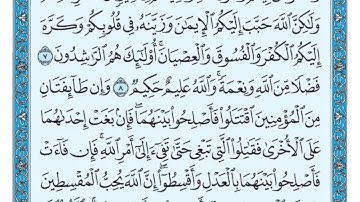 وَلَٰكِنَّ ٱللَّهَ حَبَّبَ إِلَيۡكُمُ ٱلۡإِيمَٰنَ وَزَيَّنَهُۥ فِي قُلُوبِكُمۡ وَكَرَّهَ
إِلَيۡكُمُ ٱلۡكُفۡرَ وَٱلۡفُسُوقَ وَٱلۡعِصۡيَانَۚ أُوْلَٰٓئِكَ هُمُ ٱلرَّٰشِدُونَ ٧
فَضۡلٗا مِّنَ ٱللَّهِ وَنِعۡمَةٗۚ وَٱللَّهُ عَلِيمٌ حَكِيمٞ ٨ وَإِن طَآئِفَتَانِ
مِنَ ٱلۡمُؤۡمِنِينَ ٱقۡتَتَلُواْ فَأَصۡلِحُواْ بَيۡنَهُمَاۖ فَإِنۢ بَغَتۡ إِحۡدَىٰهُمَا
عَلَى ٱلۡأُخۡرَىٰ فَقَٰتِلُواْ ٱلَّتِي تَبۡغِي حَتَّىٰ تَفِيٓءَ إِلَىٰٓ أَمۡرِ ٱللَّهِۚ فَإِن فَآءَتۡ
فَأَصۡلِحُواْ بَيۡنَهُمَا بِٱلۡعَدۡلِ وَأَقۡسِطُوٓاْۖ إِنَّ ٱللَّهَ يُحِبُّ ٱلۡمُقۡسِطِينَ